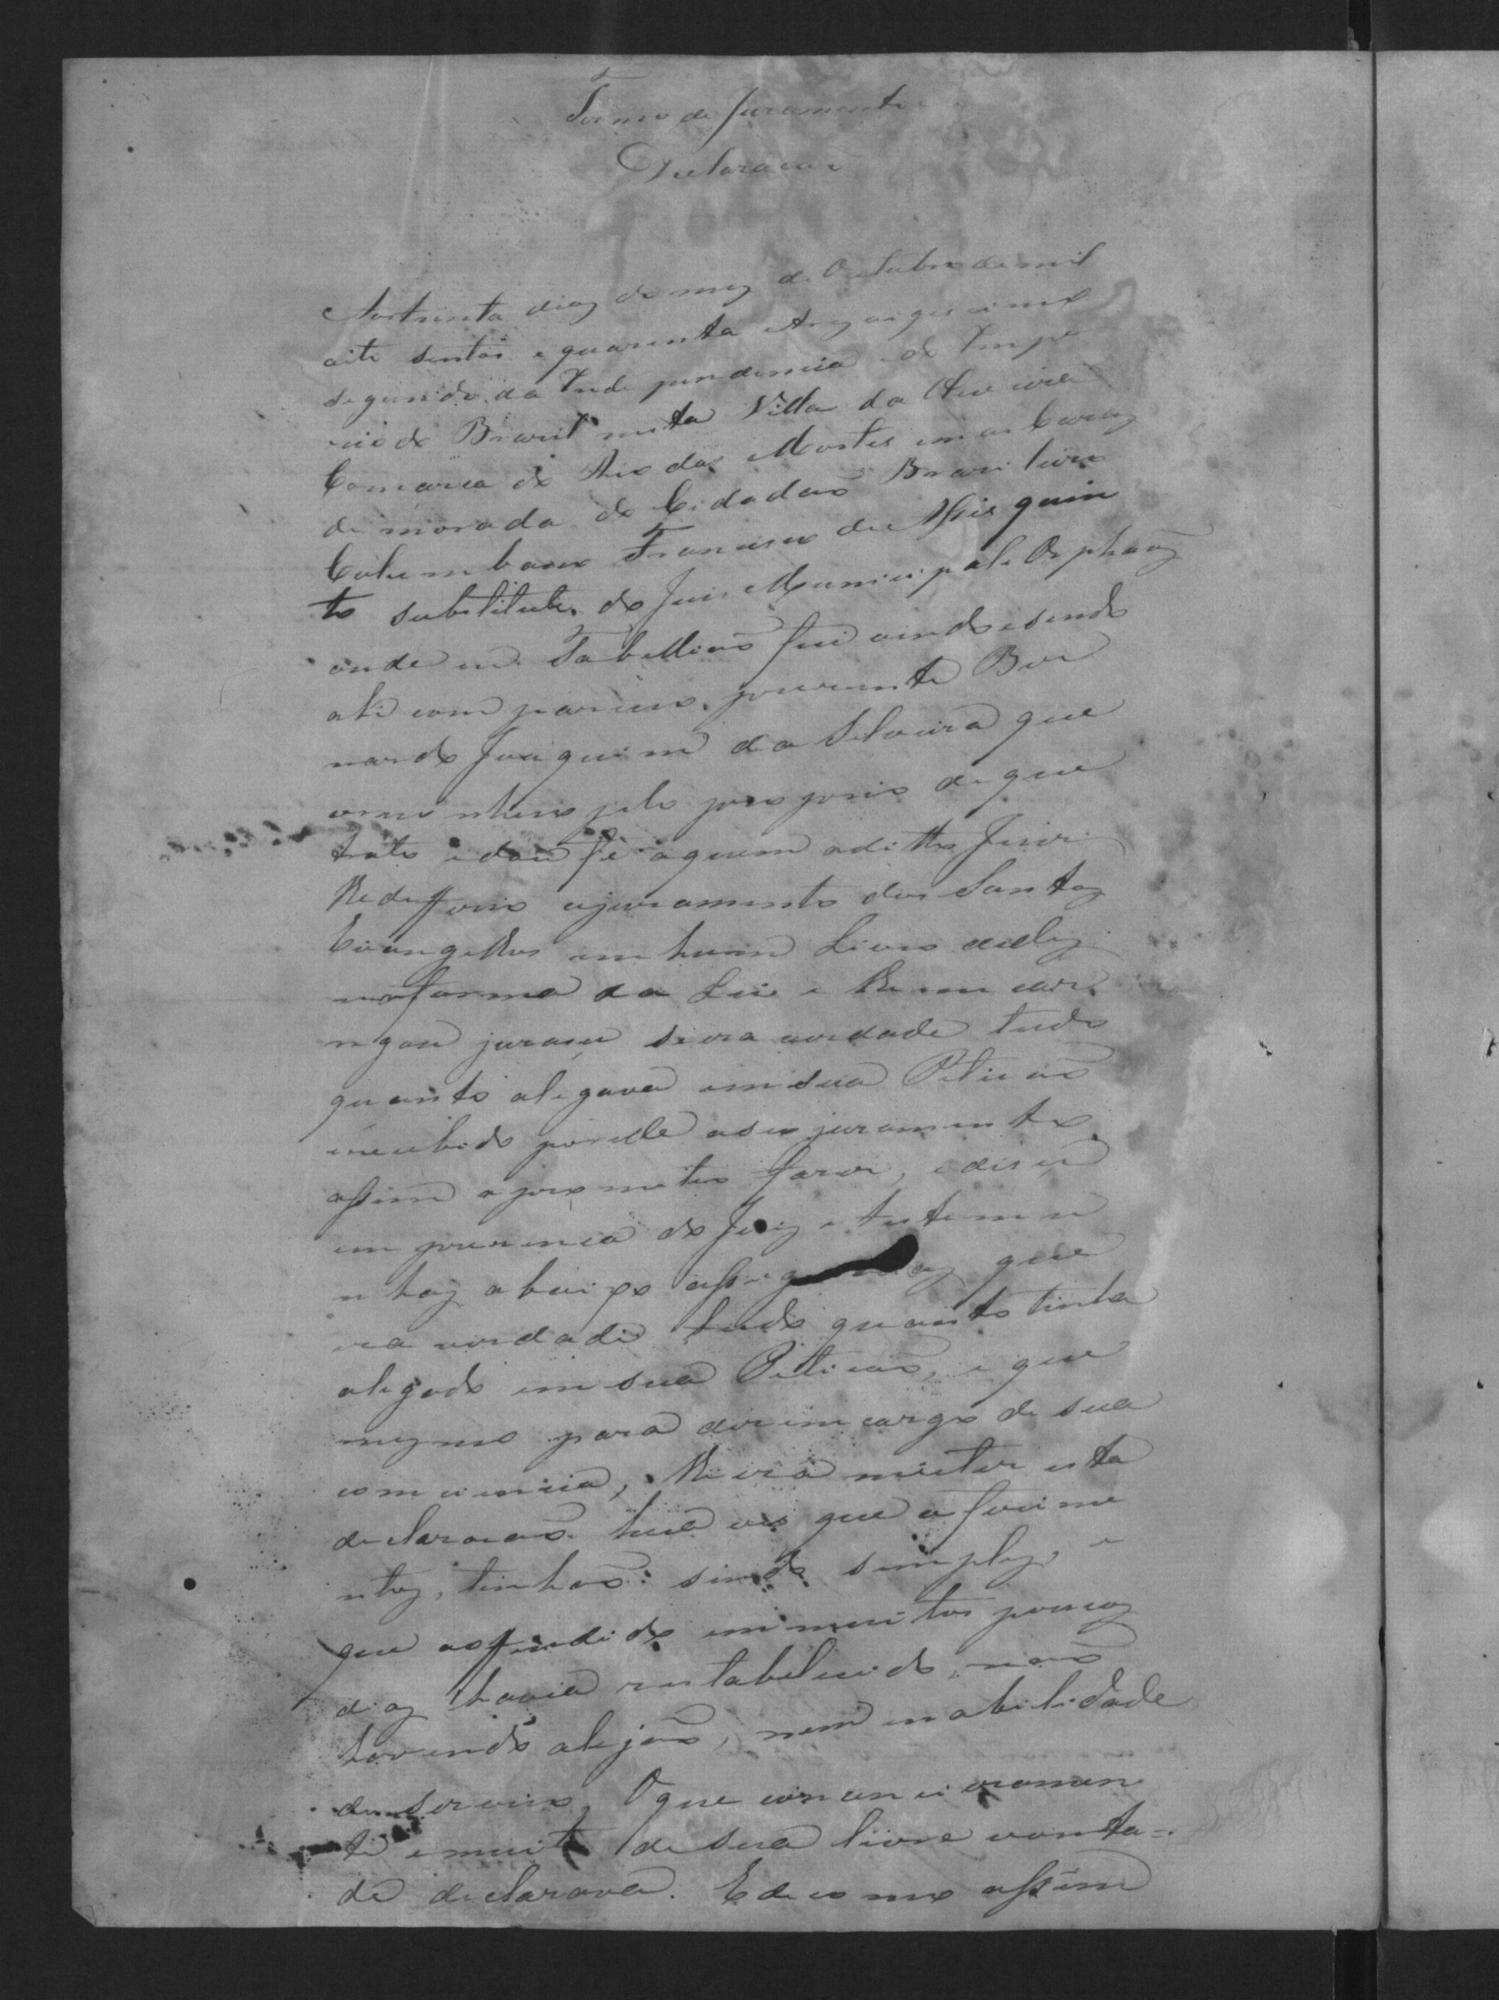 Termo de Juramento
Declaracaõ
Aos trinta dias do mez de Outubro de mil
oito sentos e quarenta e tres vigecimo
segundo da Independencia e do Impe
rio do Brasil nesta Villa da Oliveira
Comarca do Rio das Mortes em as Cazas
de morada do Cidadaõ Brasileiro
Francisco de Assis quin
to substituto do Juis Municipal e Orphaos
onde eu Tabelliaõ fui vindo e sendo
ali compariceo prezente Ber
nardo Joaquim da Silveira que
reconheco pelo proprio de que
trato e dou fé a quem o ditto Juis
deffirio o juramento dos Santos
Evangelhos em hum Livro delles
na forma da Lei e lhe encar
regou jurace se era verdade tudo
quanto alegava em sua Peticaõ
recebido por elle o seu juramento
assim o prometeo fazer, e dice
em prezenca do Juiz e testemu
nhas abaixo que
era verdade tudo quanto tinha
alegado em sua Peticaõ, e que
mesmo para dezemcargo de sua
comciencia, lhe era mister esta
declaracaõ huã ves que o ferime
ntos, tinhaõ sido simples, e
que o offendido em muitos poucos
dias havia restabelecido, naõ
havendo alejaõ, nem inabilidade
de servico, O que
te e muito de sua livre vonta=
de declarava. E de como assim